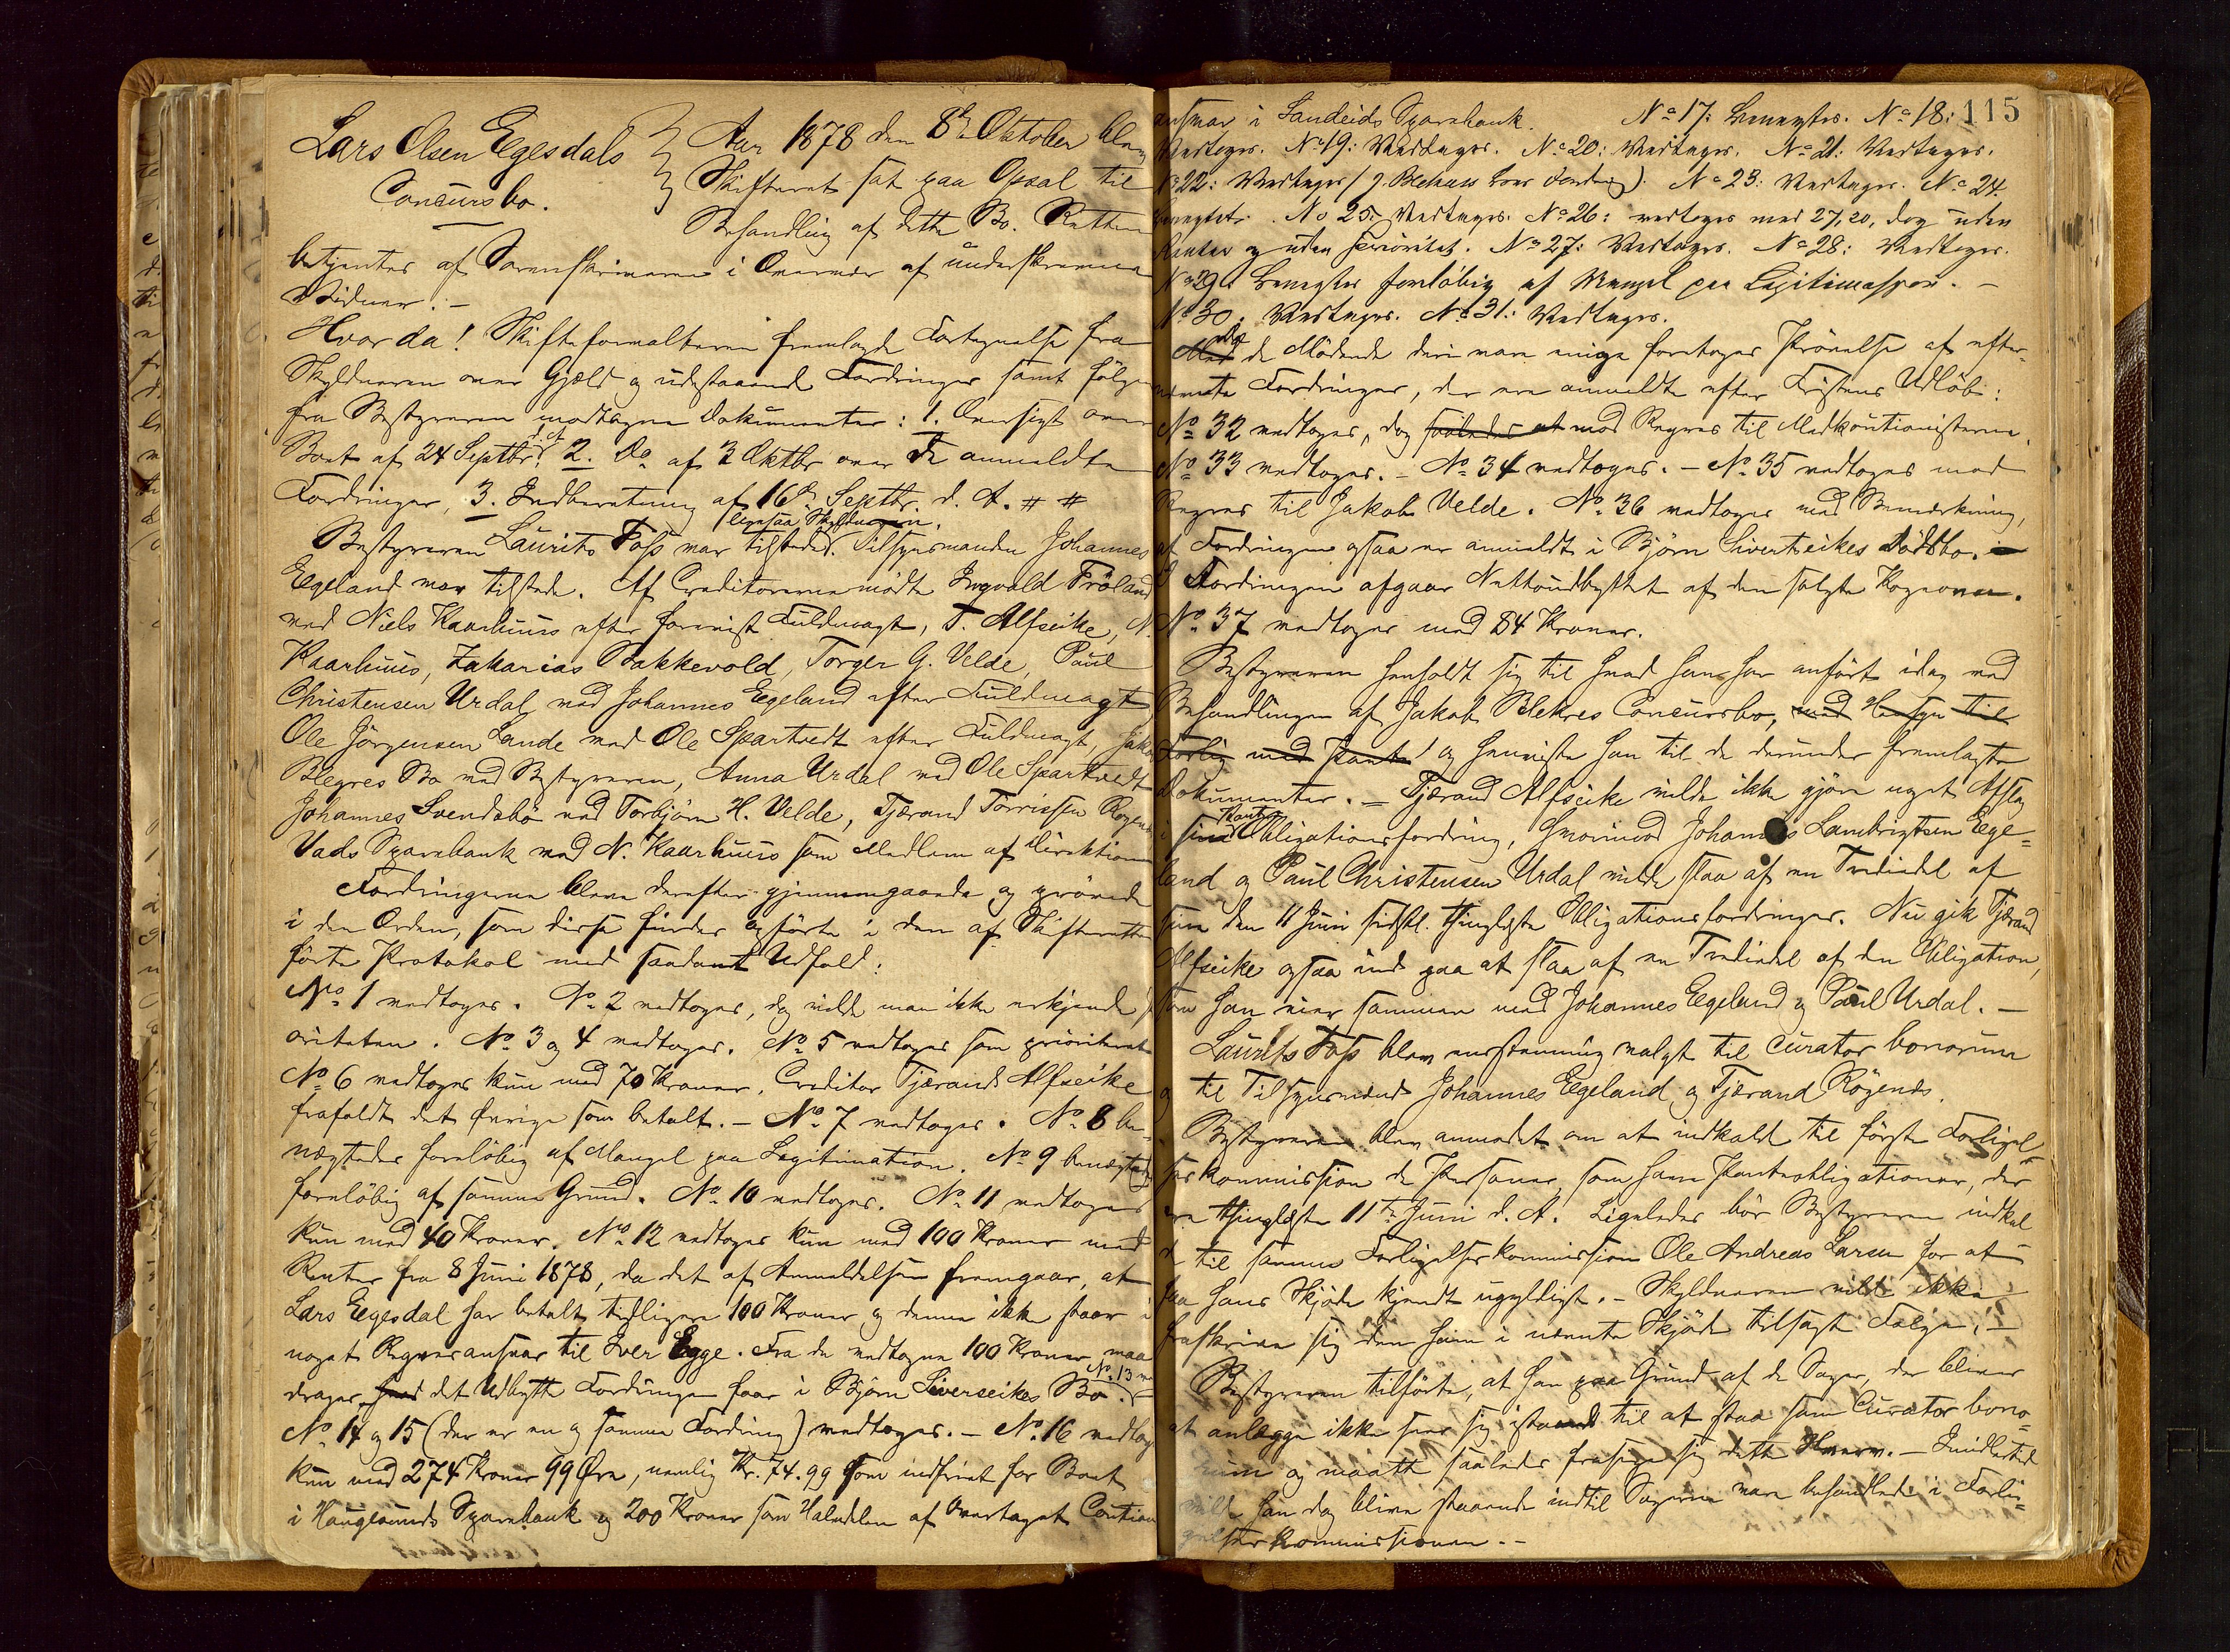 Lars Olsen Egesdals
Concursbo.
Aar 1878 den 8de Oktober blev
Skifteret sat paa Opsal til
Behandling af dette Bo. Retten
betjentes af Sorenskriveren i Overvær af underskrevne
Vidner: –
Hvorda! Skifteforvalteren fremlagde Fortegnelse fra
Skyldneren over Gjæld og udestaaende Fordringer samt følgende
fra Bestyreren modtagne Dokumenter: 1. Oversigt over
Boet af 24 Septbr. d. A. 2. Do af 3 Oktbr over de anmeldte
Fordringer, 3. Indberetning af 16de Septbr. d. A. # #
Bestyreren Laurits Foss var tilstede, ligesaa Skyldneren. Tilsynsmanden Johannes
Egeland var tilstede. Af Creditorerne mødte Ingvald Fröland
ved Niels Kaarhuus efter forevist Fuldmagt, T. Alfseike, N.
Kaarhuus, Zakarias Bakkevold, Torger G. Velde, Paul
Christensen Urdal ved Johannes Egeland efter Fuldmagt,
Ole Jörgensen Lande ved Ole Spartvedt efter Fuldmagt, Jakob
Blegres Bo ved Bestyreren, Anna Urdal ved Ole Spartvedt
Johannes Svendsbö ved Torbjörn H. Velde, Tjerand Torrissen
Vads Sparebank ved N. Kaarhuus som Medlem af Direktionen
Fordringerne bleve derefter gjennemgaaede og prövede
i den Orden, som disse findes opförte i den af Skifteretten
förte Protokol med saadant Udfald:
No 1 vedtoges. No 2 vedtoges, dog vilde man ikke erkjende Pri-
oriteten. No 3 og 4 vedtoges. No 5 vedtoges som prioriteret
No 6 vedtoges kun med 70 Kroner. Creditor Tjerand Alfseike
frafaldt det övrige som betalt. – No 7 vedtoges. No 8 be-
nægtedes foreløbig af Mangel paa Legitimation. No 9 benægtedes
foreløbig af samme Grund. No 10 vedtoges. No 11 vedtoges
kun med 40 Kroner. No 12 vedtoges kun med 100 Kroner med
Renter fra 8 Juni 1878, da det af Anmeldelsen fremgaar, at
Lars Egesdal har betalt tidligere 100 Kroner og denne ikke staar i
noget Regresansvar til Iver Egge. Fra de vedtagne 100 Kroner maa
drages det Udbytte Fordringen faar i Björn Siverseikes Bo. No 13
No 14 og 15 (der er en og samme Fordring) vedtoges. – No 16 vedtoges
kun med 274 Kroner 99 Øre, nemlig Kr. 74.99 som indfriet for Boet
i Haugesunds Sparebank og 200 Kroner som Halvdelen af overtaget Caution
ansvar i Sandeids Sparebank. No 17: Benægtes. No 18: 115
Vedtoges. No 19: Vedtages. No 20: Vedtages. No 21: Vedtages.
No 22: Vedtages. No 23: Vedtages. No 24.
benægtet. No 25: Vedtages. No 26: vedtoges med 27,20, dog uden
Renter og uden Prioritet. No 27: Vedtoges. No 28: Vedtoges.
No 29: Benegtes foreløbig af Mangel paa Legitimasjon. –
No 30: Vedtages. No 31: Vedtages.
Da de Mödende deri vare enige foretoges Prövelse af efter-
nævnte Fordringer, der ere anmeldte efter Fristens Udløb:
No 32 vedtoges, dog saaledes at mod Regres til Medkautionisterne.
No 33 vedtoges. – No 34 vedtoges. – No 35 vedtoges med
Regres til Jakob Velde. No 36 vedtoges med Bemærkning,
at Fordringen ogsaa er anmeldt i Björn Sivertseikes Dödsbo. –
I Fordringen afgaar Nettoudbyttet af den solgte
No 37 vedtoges med 84 Kroner.
Bestyreren henholdt sig til hvad han har anført idag ved
Behandlingen af Jakob Blekres Concursbo, med Hensyn til
Forlig med og henviste han til de derunder fremlagte
Dokumenter. – Tjerand Alfseike vilde ikke gjöre noget Afslag
i sin Pante Obligationsfordring, hvorimod Johannes Lambrigtsen Ege-
land og Paul Christensen Urdal vilde slaa af en Trediedel af
sine den 11 Juni sidstl. thinglæste Obligationsfordringer. Nu gik Tjerand
Alfseike ogsaa ind paa at slaa af en Trediedel af den Obligation,
som han eier sammen med Johannes Egeland og Paul Urdal. –
Laurits Foss blev enstemmig valgt til curator bonorum
og til Tilsynsmænd Johannes Egeland og Tjerand Rögends.
Bestyreren blev anmodet om at indkalde til förste Forligel-
seskommission de Personer, som have Panteobligationer, der
ere thinglæste 11te Juni d. A. Ligeledes bör Bestyreren indkal-
de til samme Forligelseskommission Ole Andreas Larsen for at
faa hans Skjöde kjendt ugyldigt. – Skyldneren vilde ikke
fraskrive sig den ham i nævnte Skjöde tilsagte Følge. –
Bestyreren tilförte, at han paa Grund af de Sager, der bliver
at anlægge ikke ser sig istand til at staa som Curator bono-
rum og maatte saaledes frasige sig dette Hverv. – Imidlertid
vilde han dog blive staaende indtil Sagerne vare behandlede i Forli-
gelseskommissionen. –